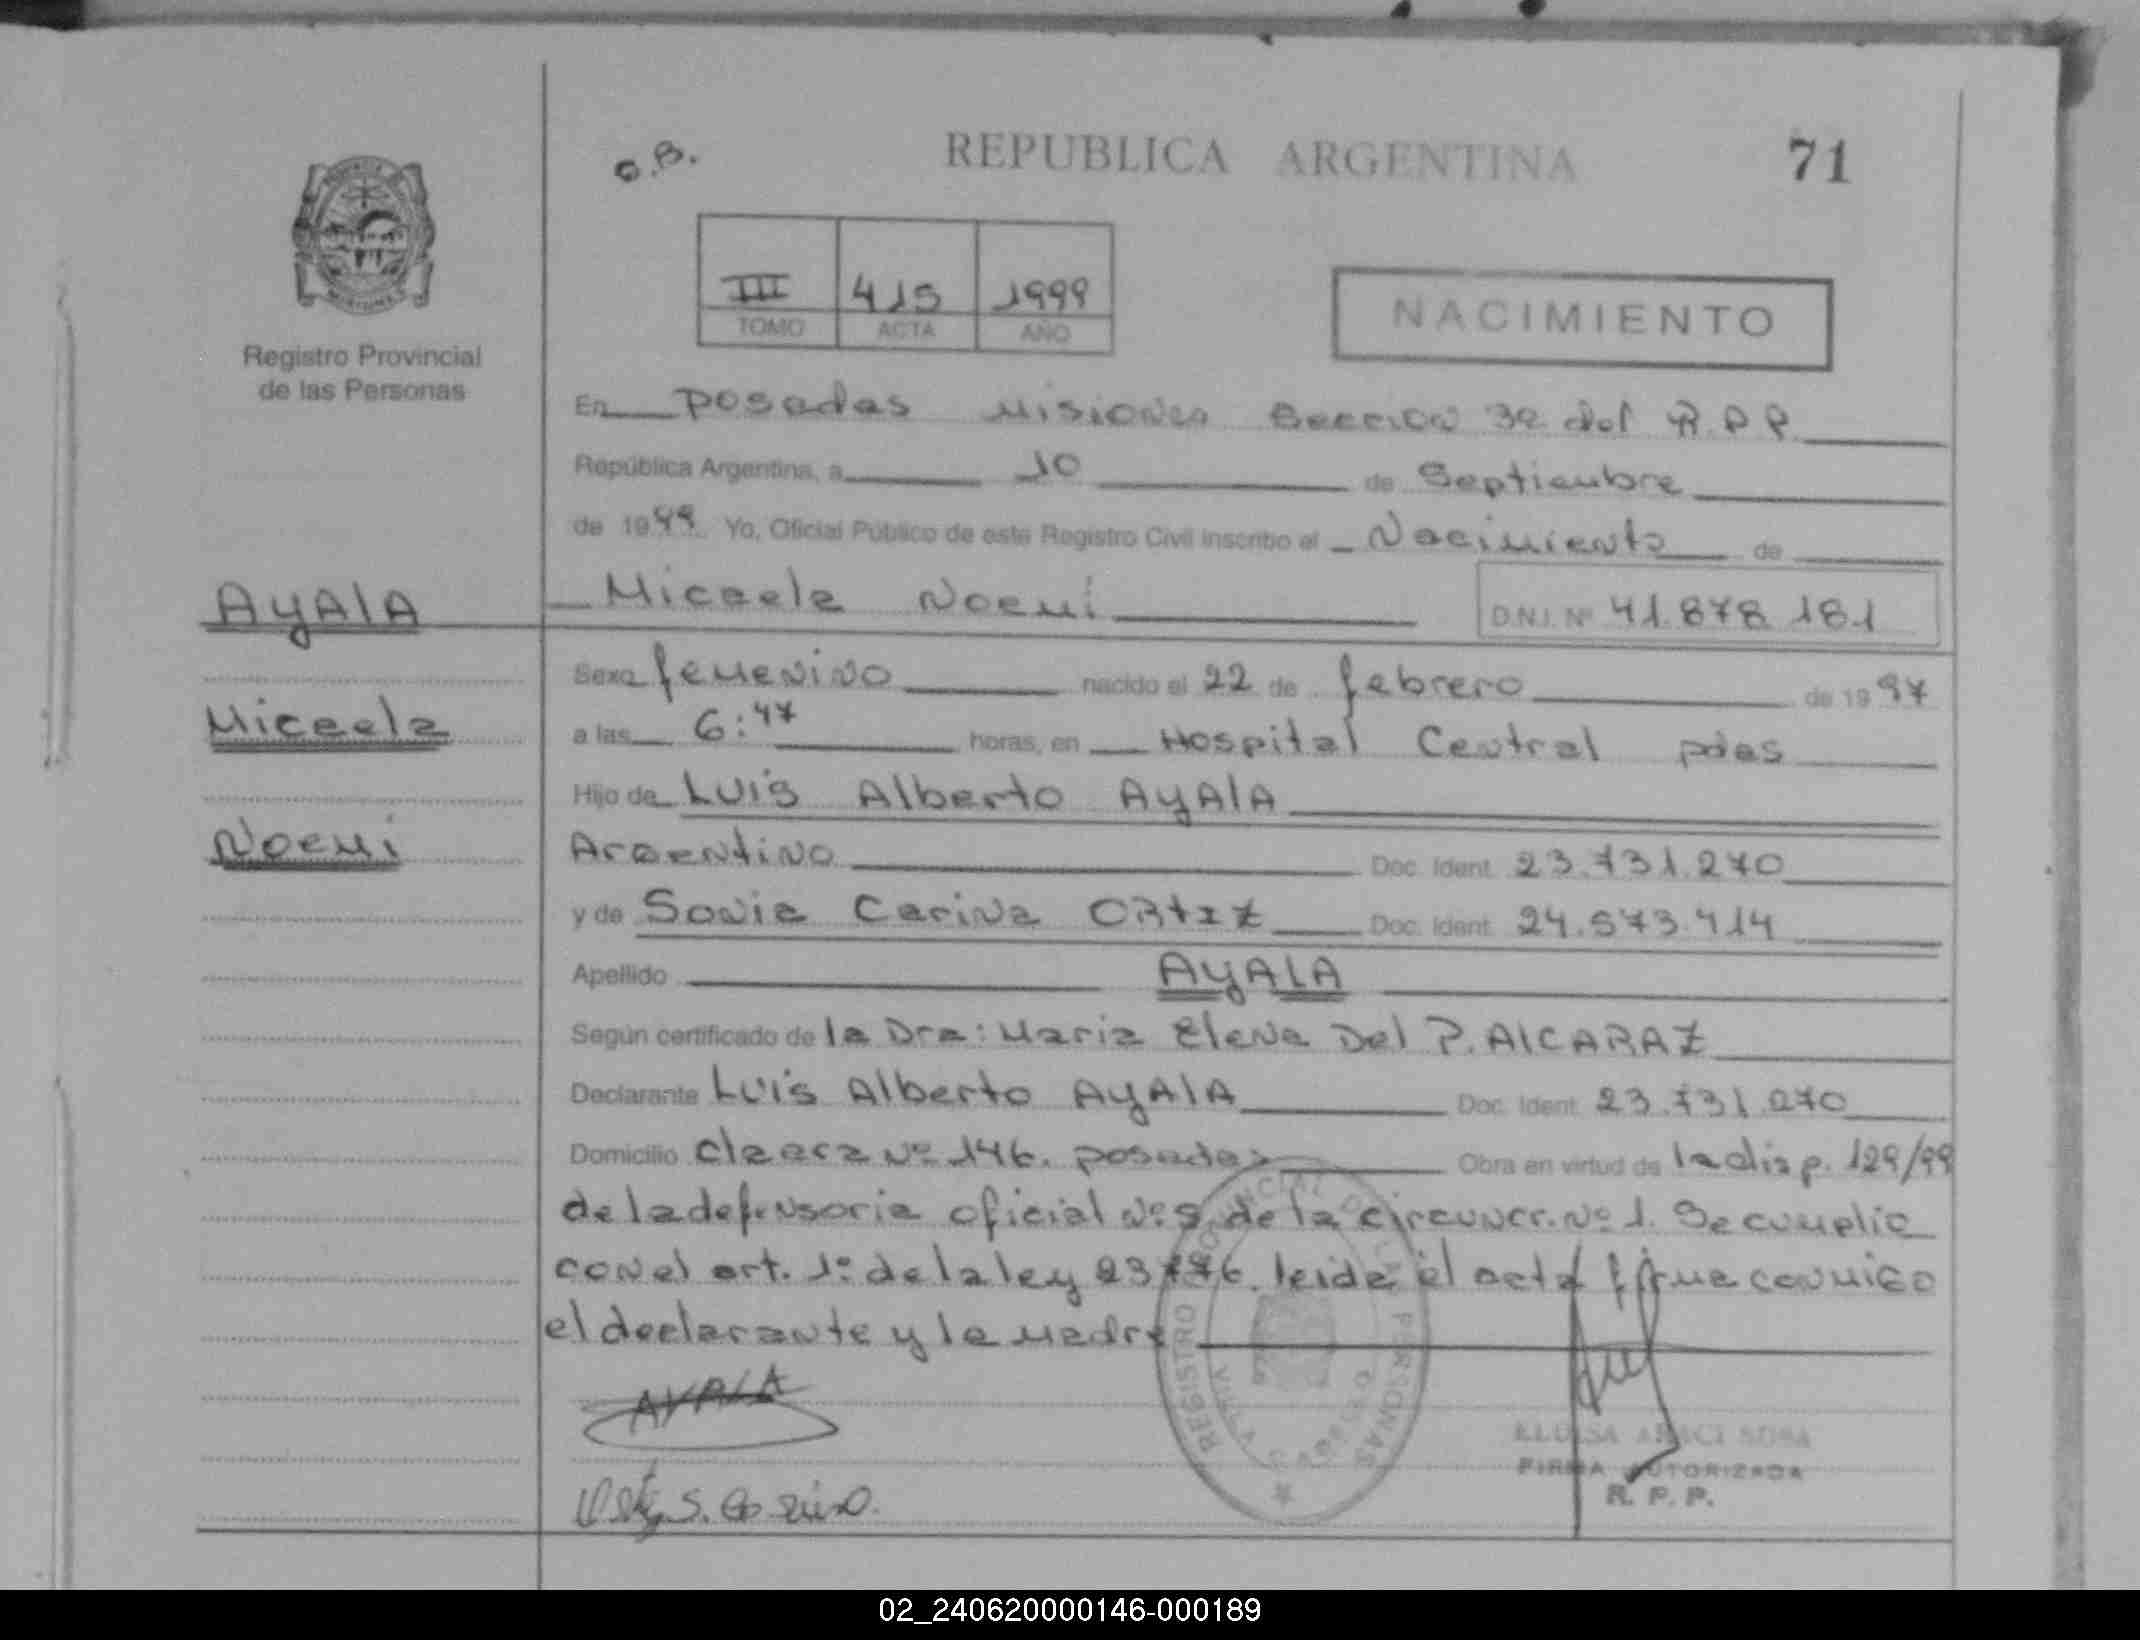 O.B.
REPUBLICA ARGENTINA
71
III 415 1999
TOMO ACTA AÑO
NACIMIENTO
Registro Provincial
de las Personas
En Posadas Misiones Seccion 3ª del R.P.P
República Argentina, a 10 de Septiembre
de 1999 Yo, Oficial Público de este Registro Civil inscribo el Nacimiento de
AyAlA
Micaela Noemí
D.N.I. Nº 41.878.181
Sexo femenino nacido el 22 de febrero de 1997
Micaela
a las 6:47 horas, en Hospital Central pdas
Hijo de Luis Alberto AyAlA
Noemí
Argentino Doc. Ident. 23.731.270
y de Sonia Carina ORtIZ Doc. Ident. 24.573.414
Apellido AyALA
Según certificado de la Dra: Maria Elena Del P. AlCARAZ
Declarante Luis Alberto AyAlA Doc. Ident. 23.731.270
Domicilio Nº 146. posadas Obra en virtud de la disp. 129/99
de la defensoria oficial Nº 5 de la circuncr. Nº 1. Se cumplio
con el art. 1º de la ley 23776. leida el acta firma conmigo
el declarante y la madre
AYALA
REGISTRO PROVINCIAL DE LAS PERSONAS
POSADAS
FIRMA AUTORIZADA
R. P. P.
02_240620000146-000189